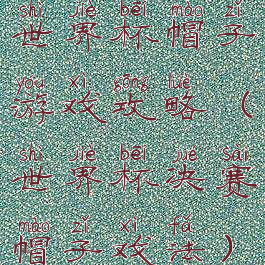 shì jiè bēi mào zǐ
世界杯帽子
yóu xì gōng lüè
游戏攻略（
shì jiè bēi jué sài
世界杯决赛
mào zǐ xì fǎ
帽子戏法）